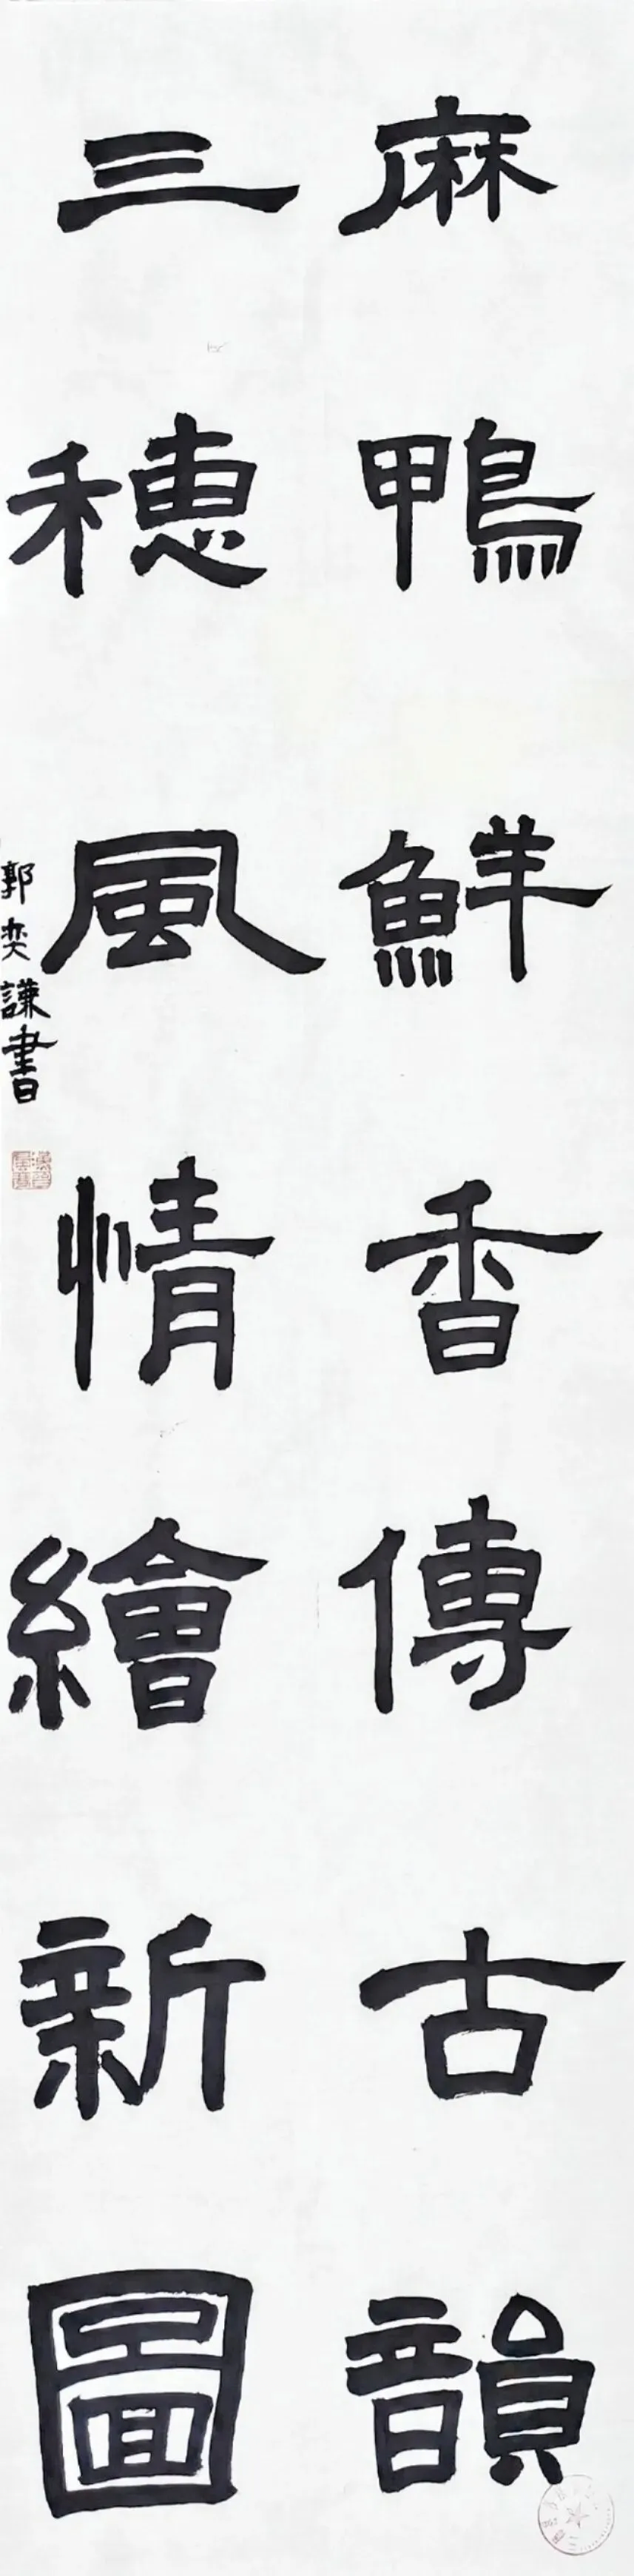 麻鴨鮮香傳古韻
三穗風情繪新圖
郭奕謙書